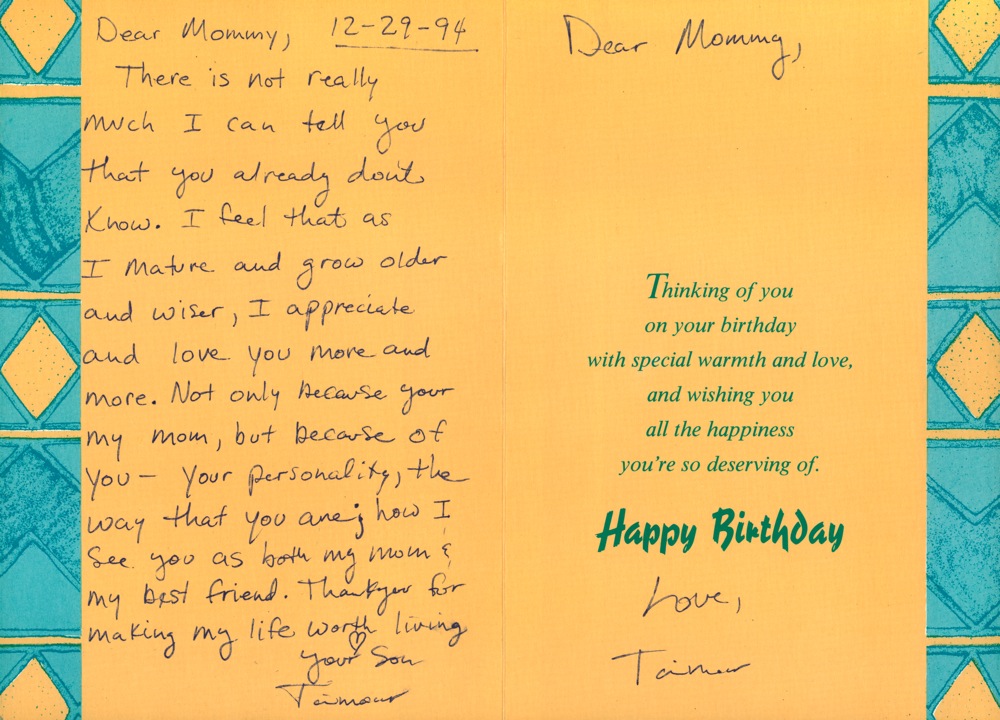 Dear Mommy, 12-29-94
There is not really
much I can tell you
that you already don't
know. I feel that as
I mature and grow older
and wiser, I appreciate
and love you more and
more. Not only because your
my mom, but because of
you- your personality, the
way that you are; how I
see you as both my mom &
my best friend. Thankyou for
making my life worth living
your Son
Taimour
Dear Mommy,
Thinking of you
on your birthday
with special warmth and love,
and wishing you
all the happiness
you're so deserving of.
Happy Birthday
Love,
Taimour